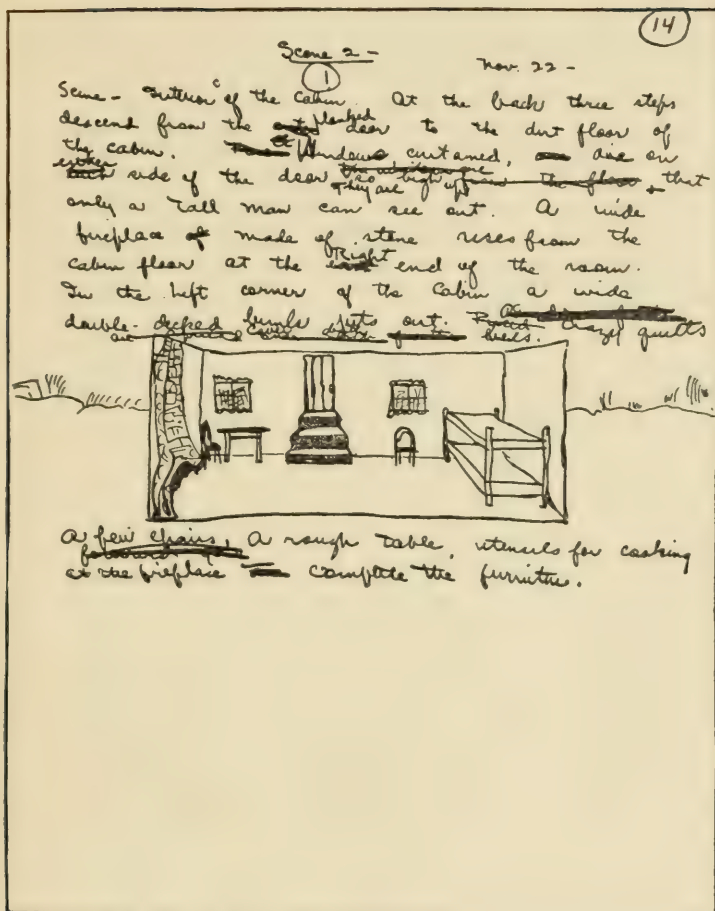 14
Scene 2 -
1
Nov. 22 -
Scene - Interior of the cabin. At the back three steps
descend from the planked door to the dirt floor of
the cabin. Windows curtained, are on
either side of the door They are so high up that
only a tall man can see out. A wide
fireplace made of stone rises from the
cabin floor at the Right end of the room.
In the Left corner of the Cabin a wide
double-decked bunk juts out. Crazy quilts
beds.
A few chairs, A rough table, utensils for cooking
at the fireplace complete the furniture.